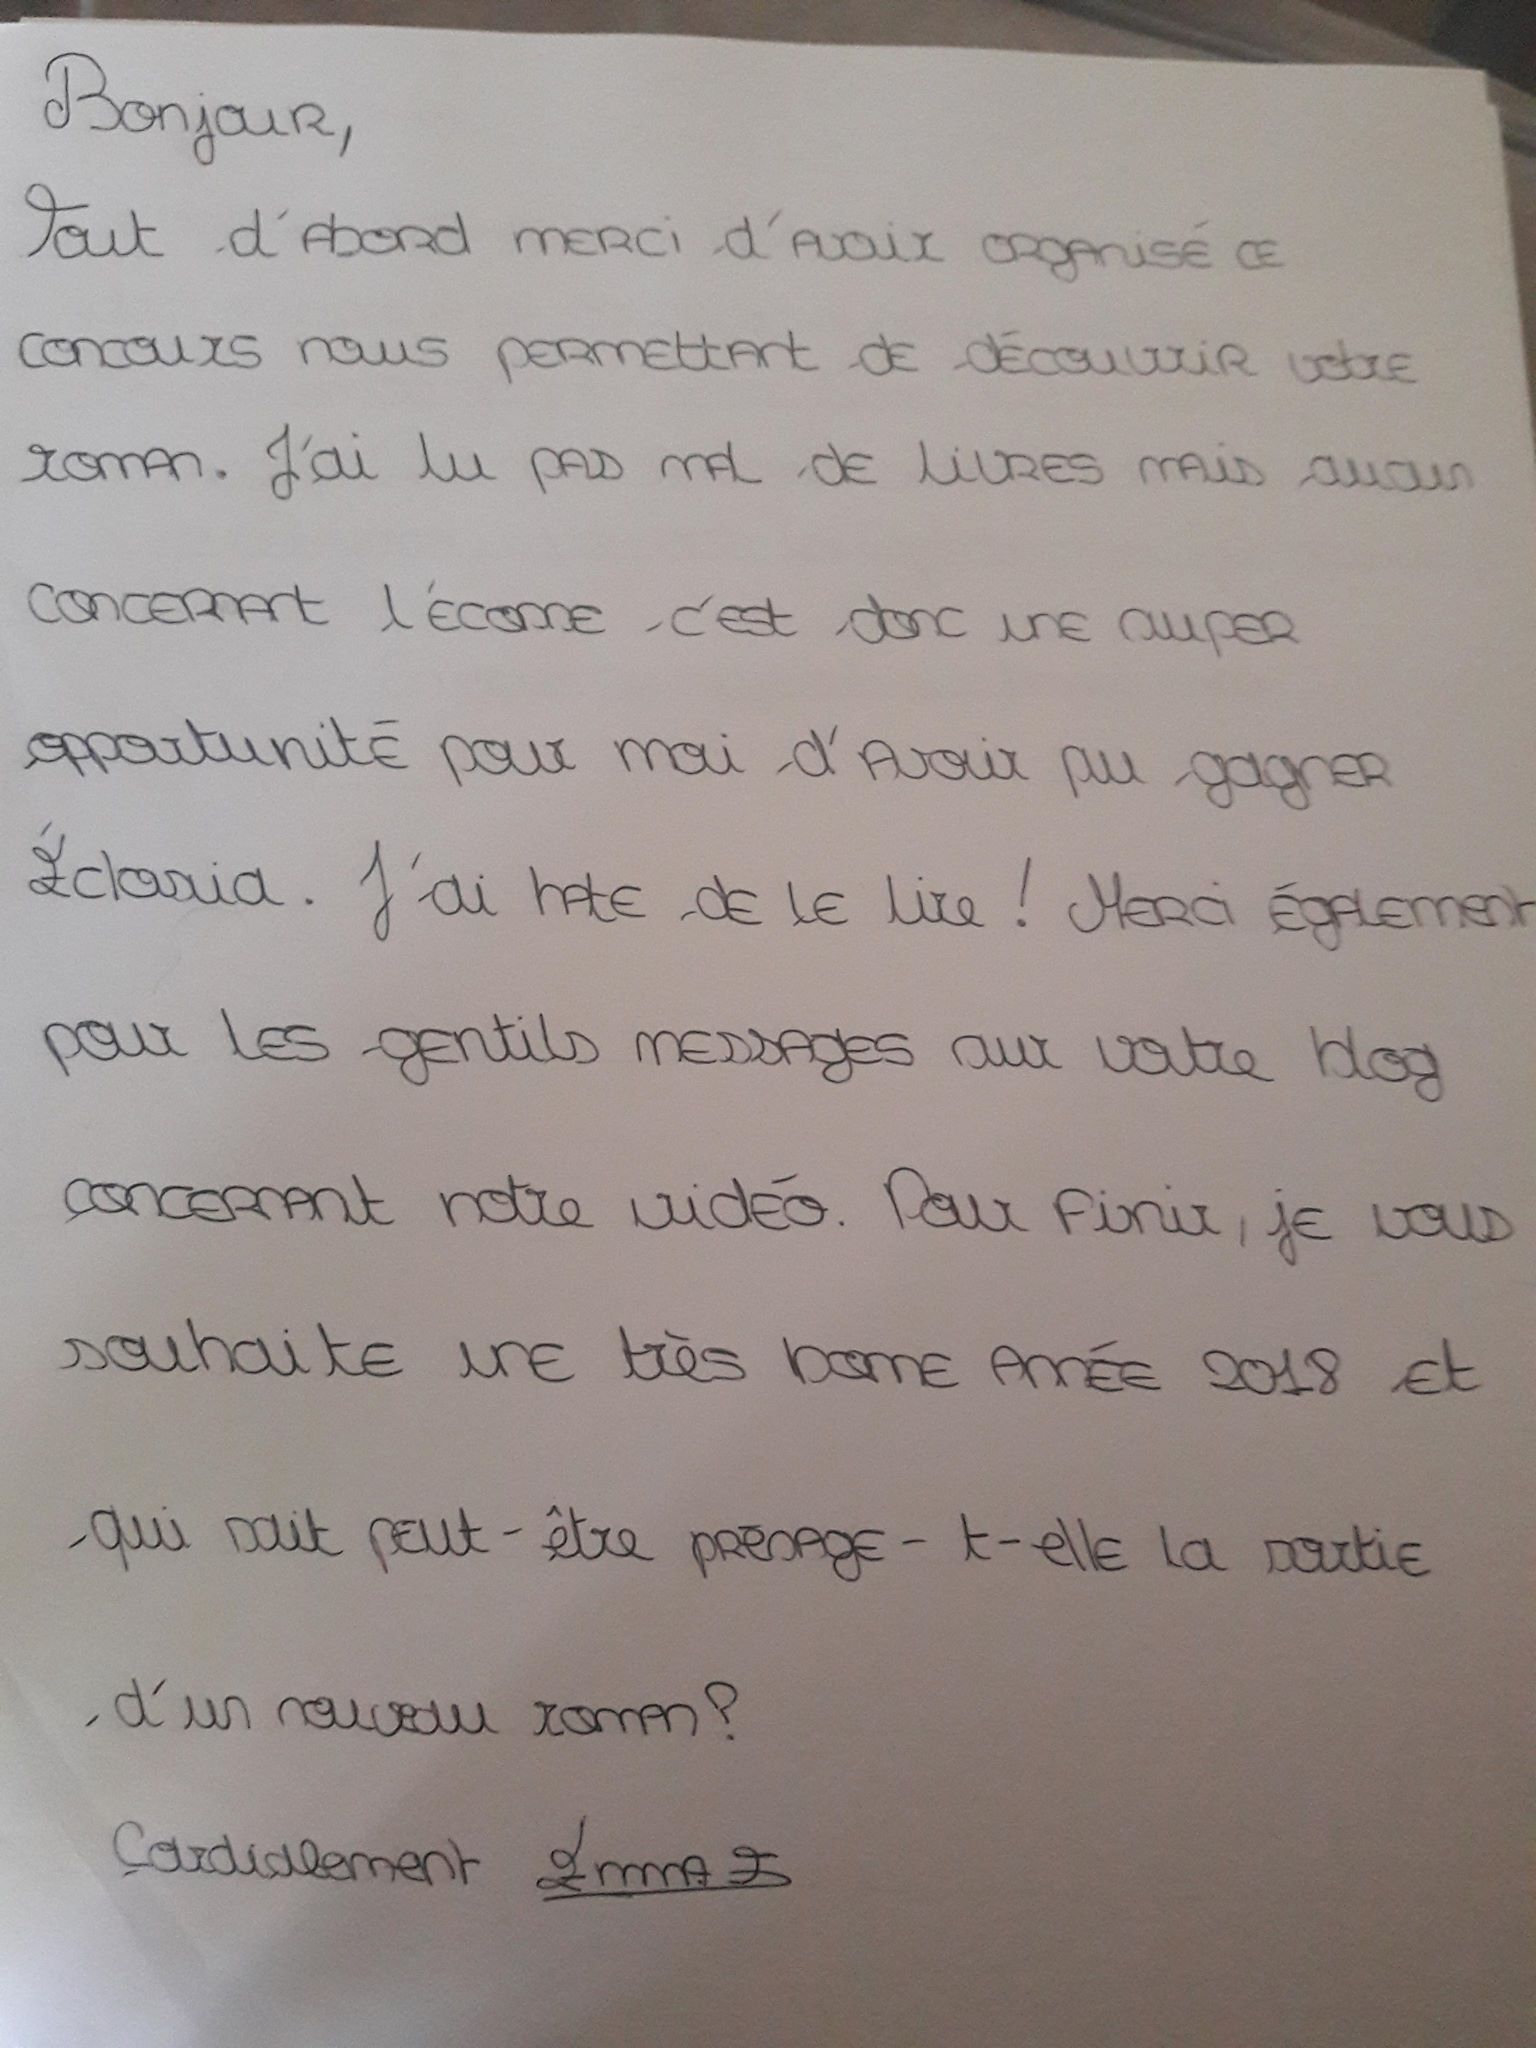 Bonjour,
Tout d'abord merci d'avoir organisé ce
concours nous permettant de découvrir votre
roman. J'ai lu pas mal de livres mais aucun
concernant l'écosse c'est donc une super
opportunité pour moi d'avoir pu gagner
Éclosia. J'ai hate de le lire ! Merci également
pour les gentils messages sur votre blog
concernant notre vidéo. Pour finir, je vous
souhaite une très bonne année 2018 et
qui sait peut-être présage-t-elle la sortie
d'un nouveau roman ?
Cordialement Emma